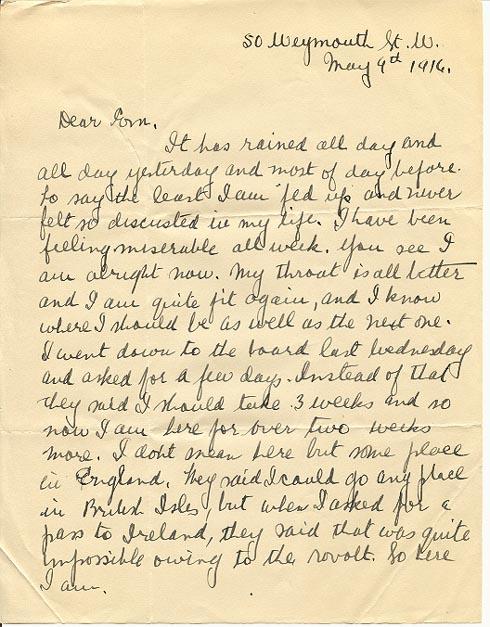 50 Weymouth St. W.
May 9th 1916.
Dear Tom.
It has rained all day and
all day yesterday and most of day before.
to say the least I am "fed up" and never
felt so discusted in my life. I have been
feeling miserable all week. You see I
am alright now. My throat is all better
and I am quite fit again, and I know
where I should be as well as the next one.
I went down to the board last Wednesday
and asked for a few days. Instead of that
they said I should take 3 weeks and so
now I am here for over two weeks
more. I don't mean here but some place
in England. They said I could go any place
in British Isles, but when I asked for a
pass to Ireland, they said that was quite
impossible owing to the rovolt. So here
I am.